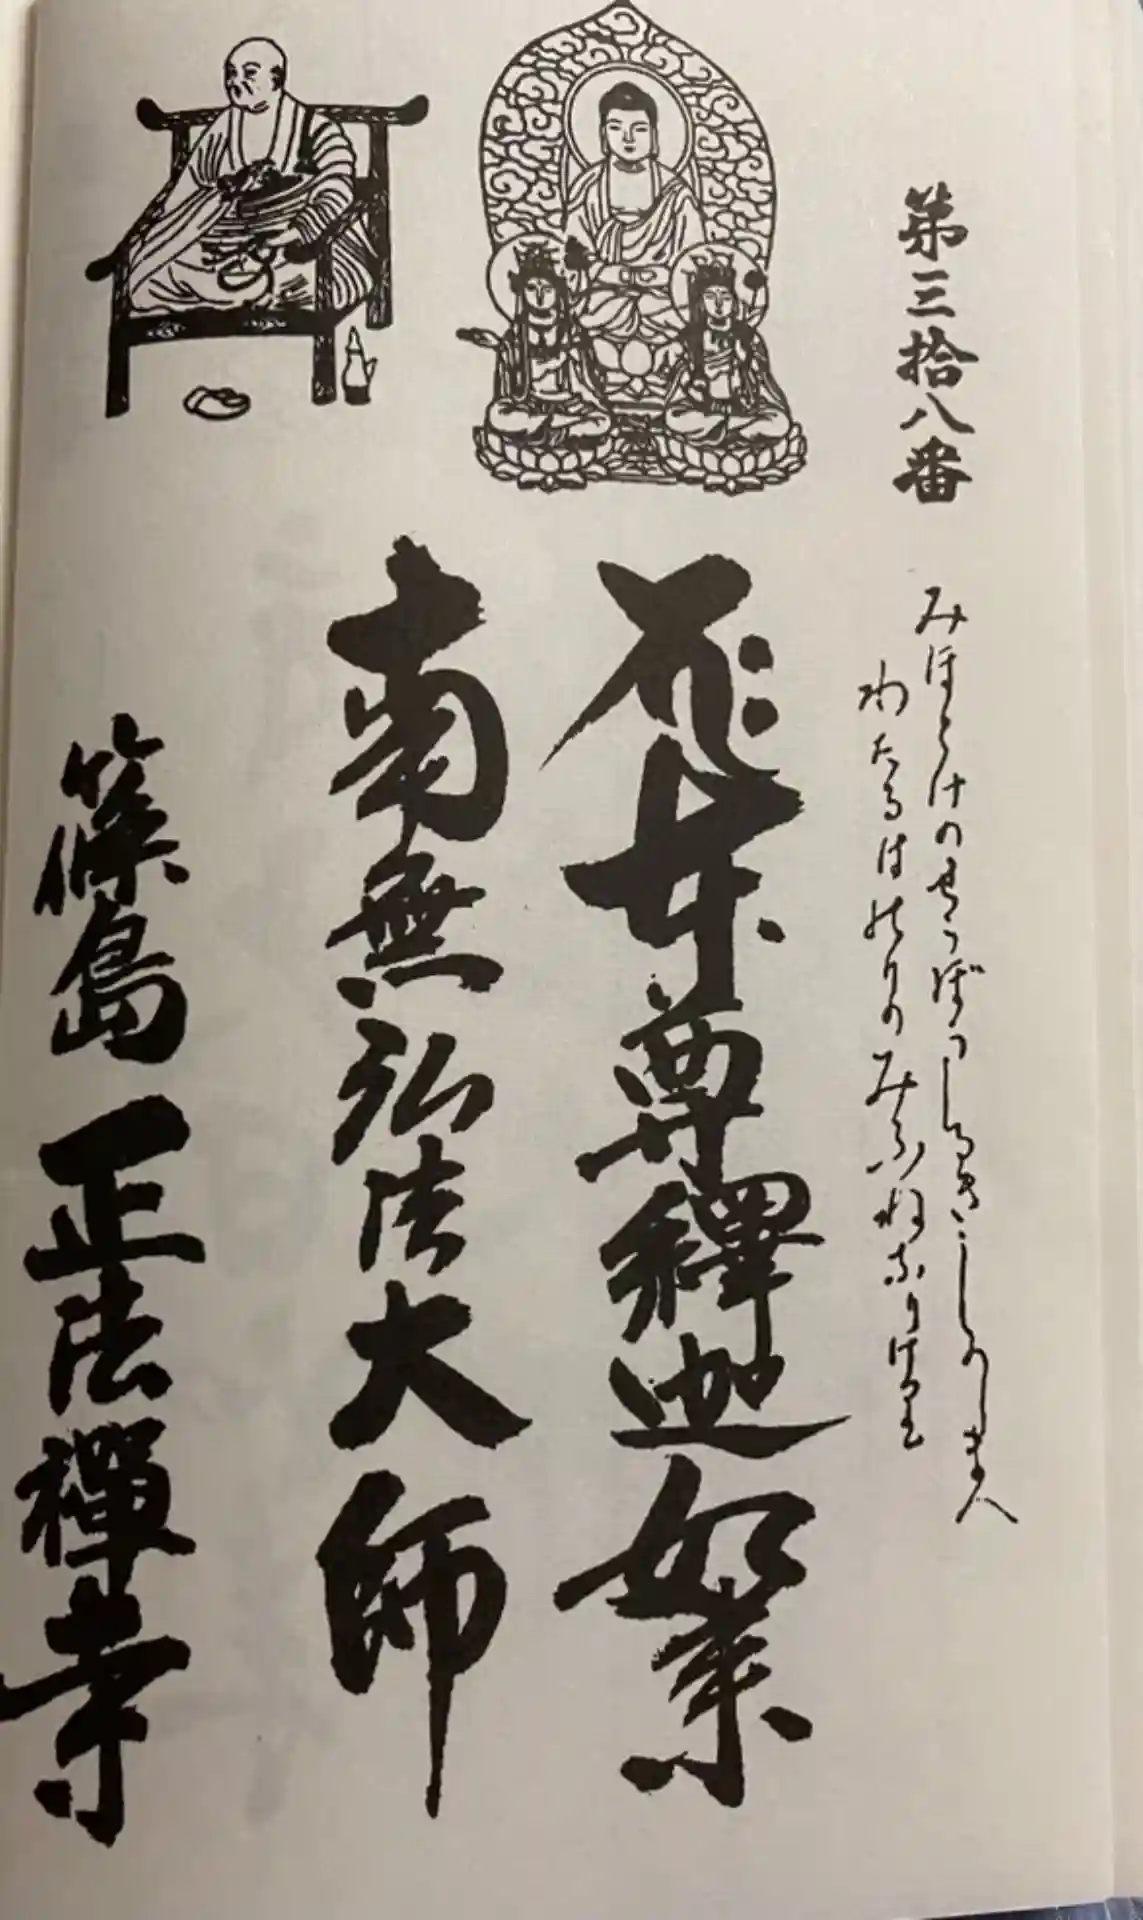 第三拾八番
みほとけのせうぼうしるきしのしまへ
わたるはのりのみふねなりけり
本尊釋迦如来
南無弘法大師
篠島 正法禪寺